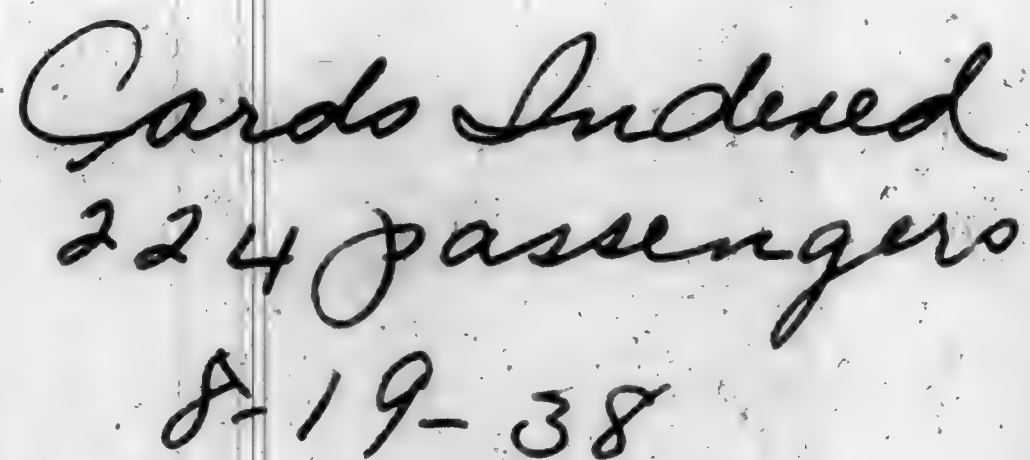 Cards Indexed
224 passengers
8-19-38